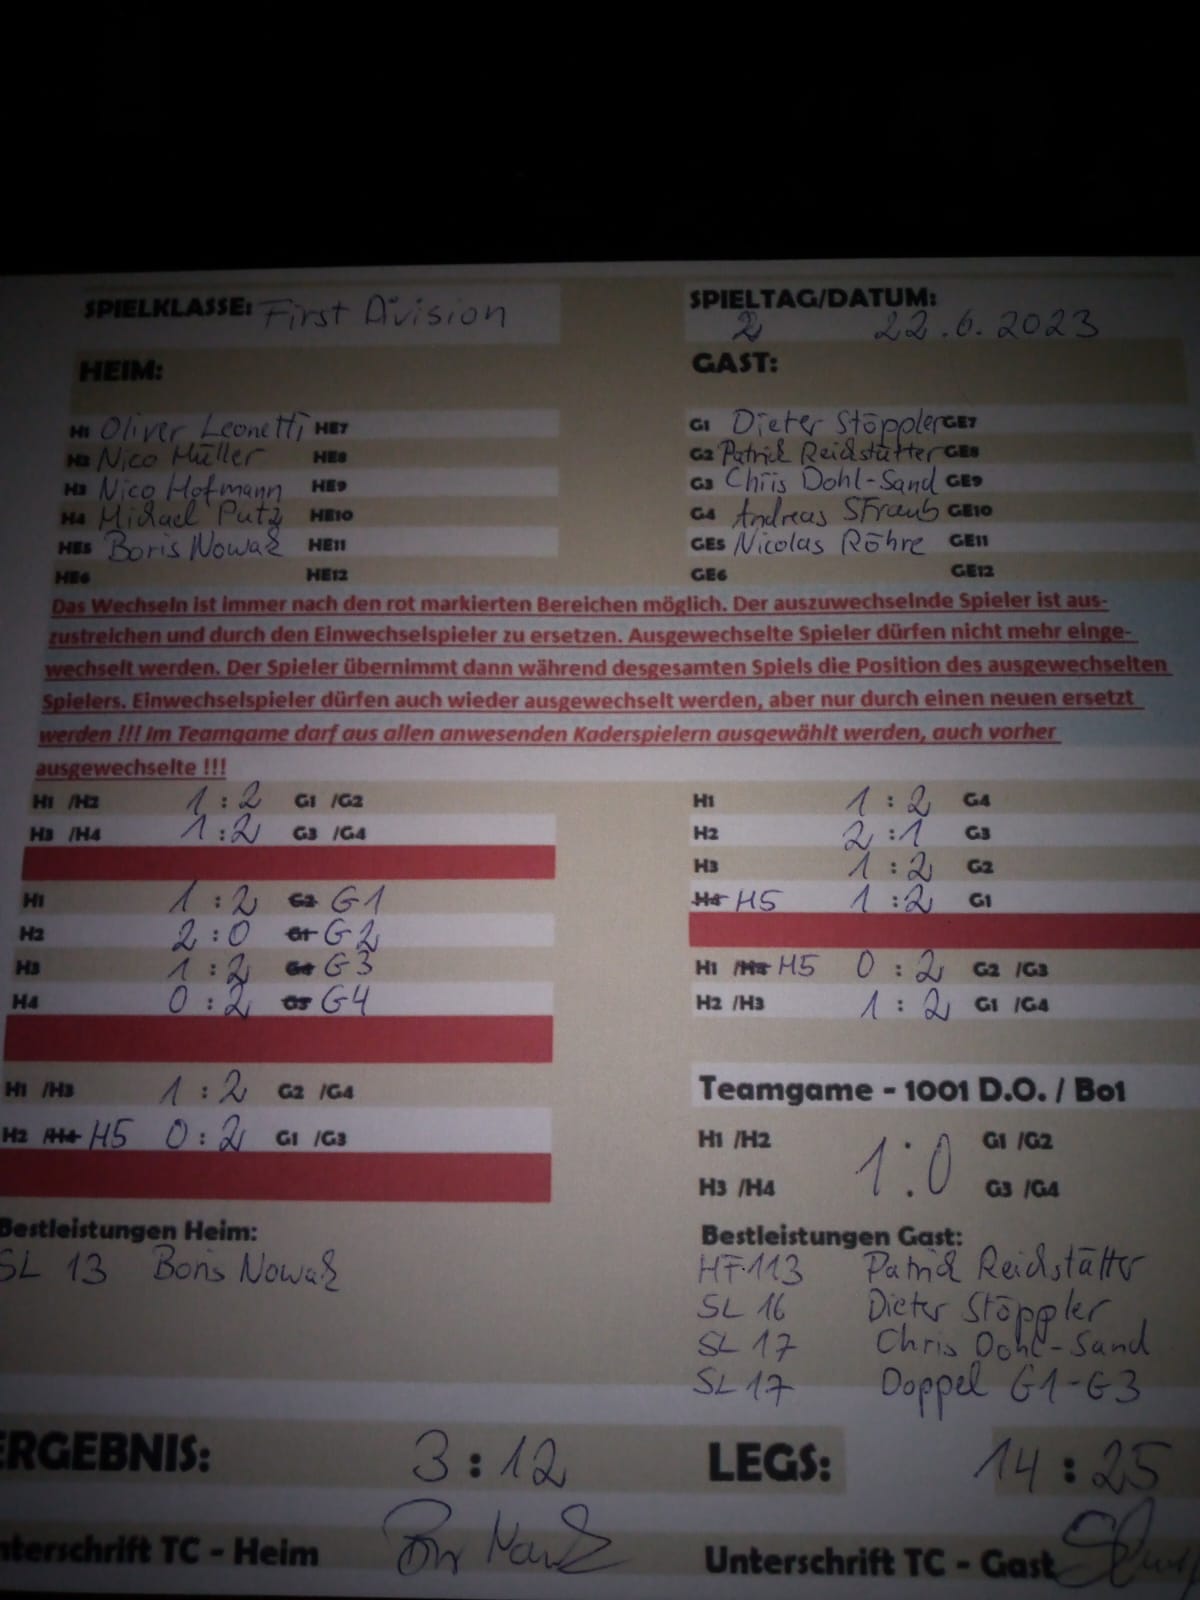 SPIELKLASSE: First Division
SPIELTAG/DATUM:
2 22.6.2023
HEIM:
GAST:
H1 Oliver Leonetti HE7
H2 Nico Müller HE8
H3 Nico Hofmann HE9
H4 Michael Putz HE10
HE5 Boris Nowak HE11
HE6 HE12
G1 Dieter Stöppler GE7
G2 Patrick Reichstätter GE8
G3 Chris Dohl-Sand GE9
G4 Andreas Straub GE10
GE5 Nicolas Röhre GE11
GE6 GE12
Das Wechseln ist immer nach den rot markierten Bereichen möglich. Der auszuwechselnde Spieler ist aus-
zustreichen und durch den Einwechselspieler zu ersetzen. Ausgewechselte Spieler dürfen nicht mehr einge-
wechselt werden. Der Spieler übernimmt dann während desgesamten Spiels die Position des ausgewechselten
Spielers. Einwechselspieler dürfen auch wieder ausgewechselt werden, aber nur durch einen neuen ersetzt
werden !!! Im Teamgame darf aus allen anwesenden Kaderspielern ausgewählt werden, auch vorher
ausgewechselte !!!
H1 /H2 1 : 2 G1 /G2
H3 /H4 1 : 2 G3 /G4
H1 1 : 2 G2 G1
H2 2 : 0 G1 G2
H3 1 : 2 G4 G3
H4 0 : 2 G3 G4
H1 /H3 1 : 2 G2 /G4
H2 /H4 H5 0 : 2 G1 /G3
H1 1 : 2 G4
H2 2 : 1 G3
H3 1 : 2 G2
H4 H5 1 : 2 G1
H1 /H4 H5 0 : 2 G2 /G3
H2 /H3 1 : 2 G1 /G4
Teamgame - 1001 D.O. / Bo1
H1 /H2 G1 /G2
1:0
H3 /H4 G3 /G4
Bestleistungen Heim:
SL 13 Boris Nowak
Bestleistungen Gast:
HF 113 Patrick Reichstätter
SL 16 Dieter Stöppler
SL 17 Chris Dohl-Sand
SL 17 Doppel G1-G3
ERGEBNIS: 3 : 12
LEGS: 14 : 25
nterschrift TC - Heim
Unterschrift TC - Gast